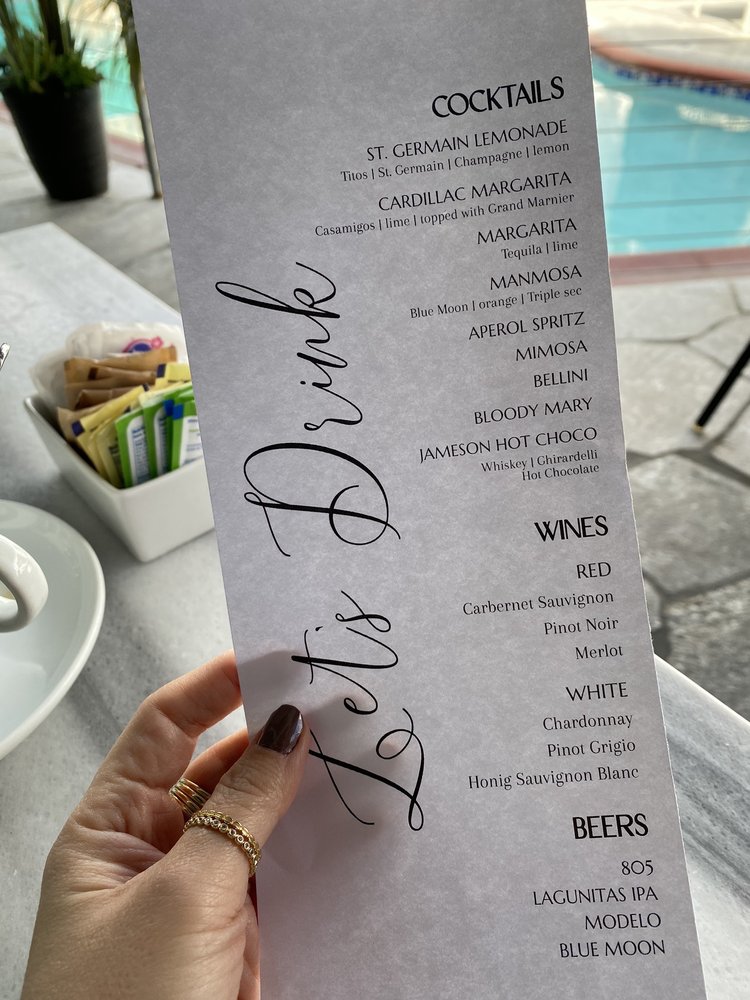 Let's Drink
COCKTAILS
ST. GERMAIN LEMONADE
Titos | St. Germain | Champagne | lemon
CARDILLAC MARGARITA
Casamigos | lime | topped with Grand Marnier
MARGARITA
Tequila | lime
MANMOSA
Blue Moon | orange | Triple sec
APEROL SPRITZ
MIMOSA
BELLINI
BLOODY MARY
JAMESON HOT CHOCO
Whiskey | Ghirardelli
Hot Chocolate
WINES
RED
Carbernet Sauvignon
Pinot Noir
Merlot
WHITE
Chardonnay
Pinot Grigio
Honig Sauvignon Blanc
BEERS
805
LAGUNITAS IPA
MODELO
BLUE MOON